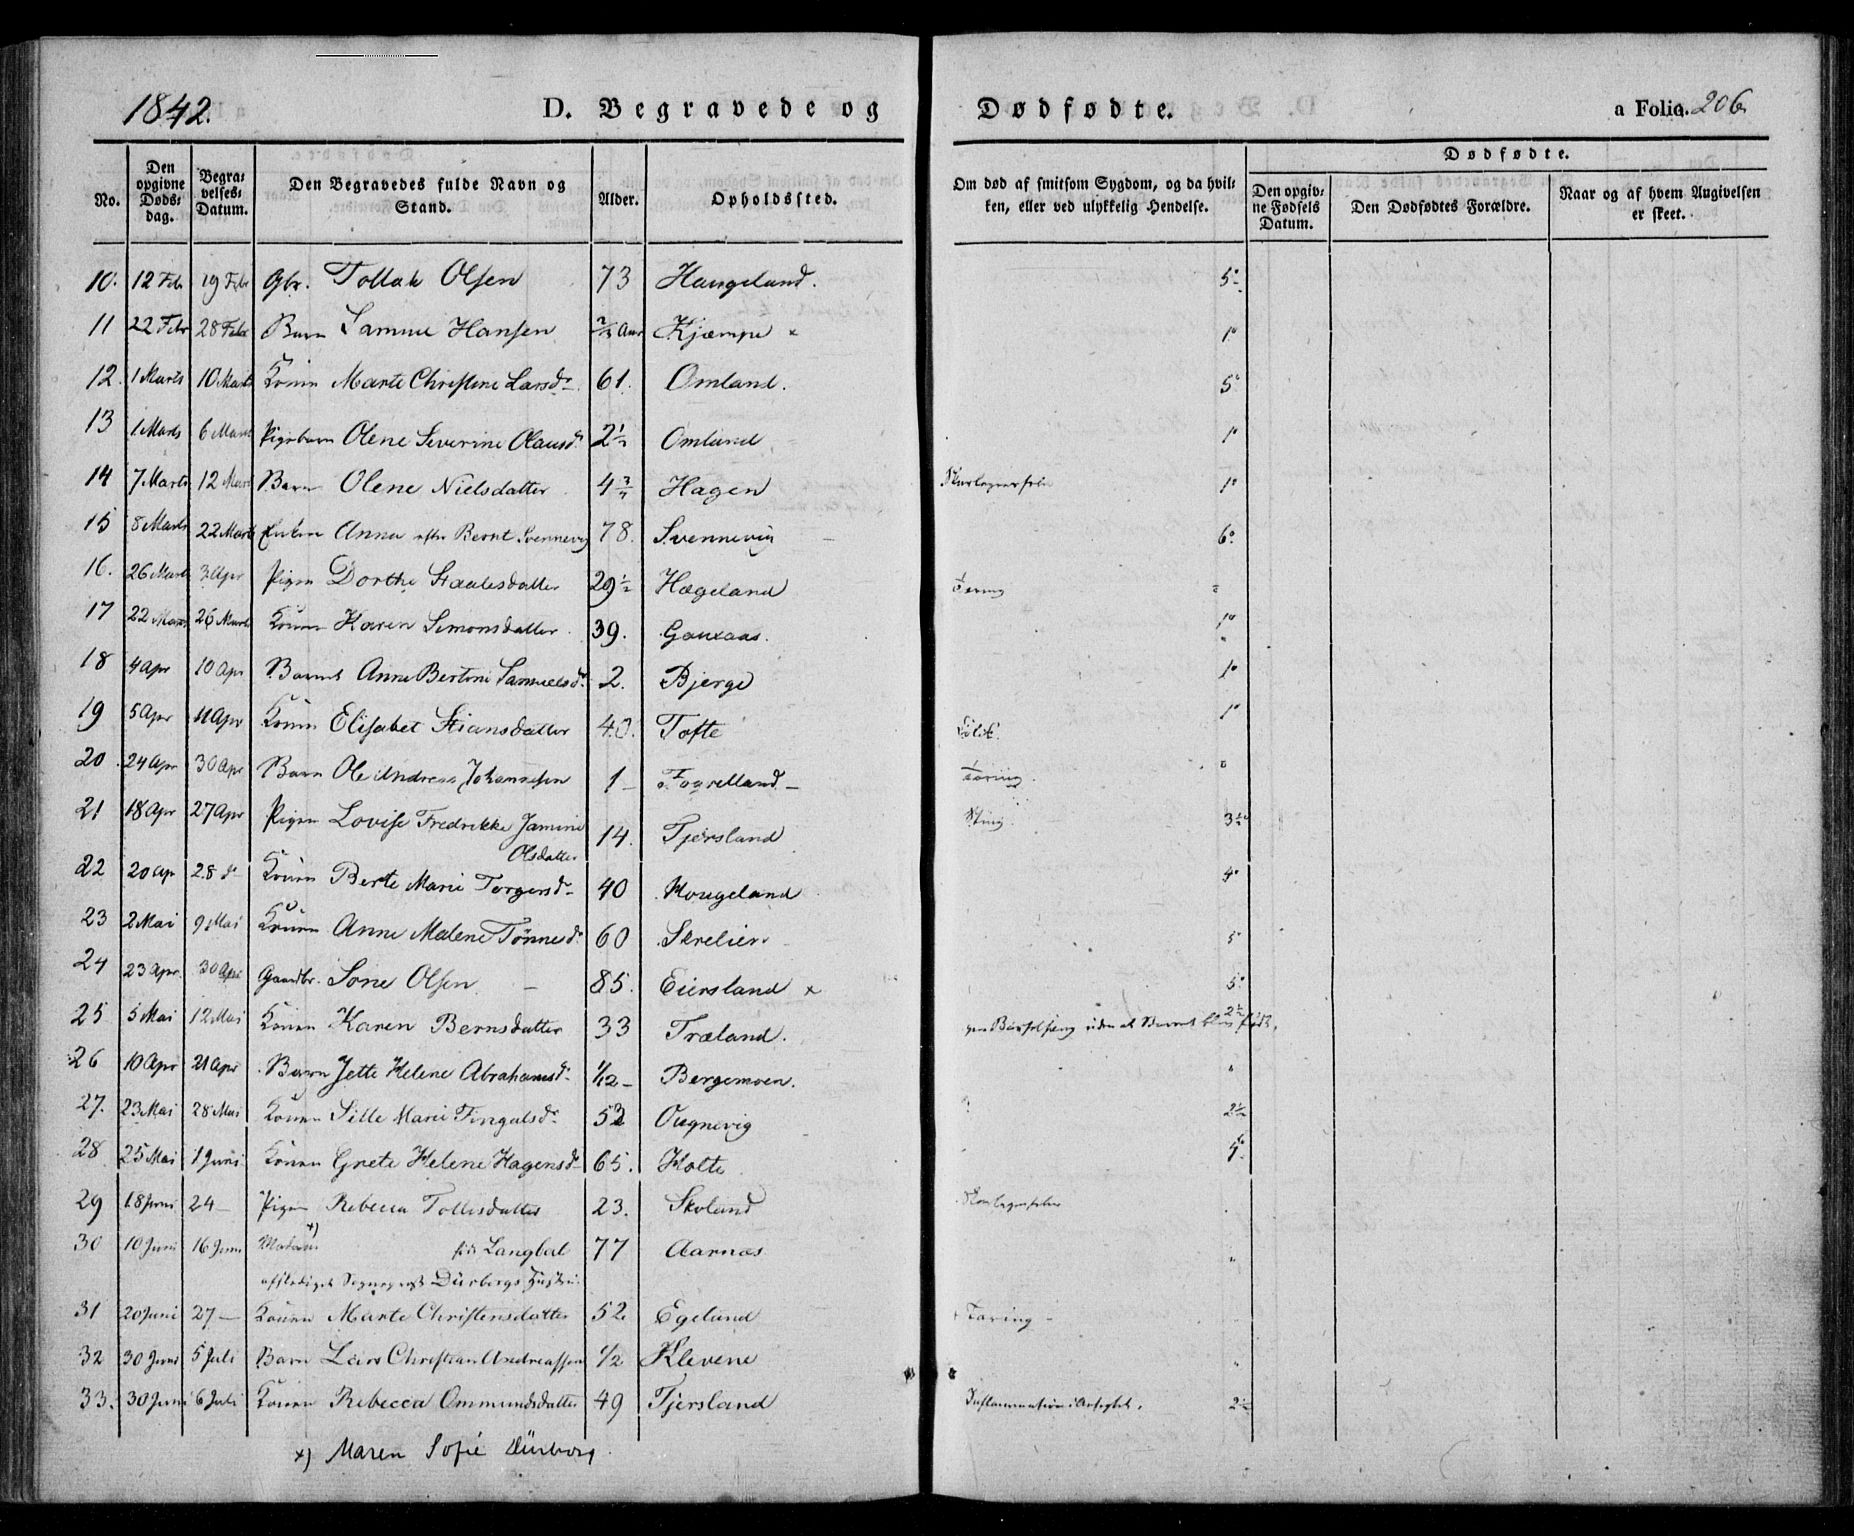 1842. D. Begravede og Dødfødte. a Folio. 206
Dødfødte.
No. Den opgivne Døds-dag. Begra-velses-Datum. Den Begravedes fulde Navn og Stand. Alder. Opholdssted. Om død af smitsom Sygdom, og da hvil-ken, eller ved ulykkelig Hendelse. Den opgiv-ne Fødsels Datum. Den Dødfødtes Forældre. Naar og af hvem Angivelsen er skeet.
10. 12 Febr 19 Febr Gbr. Tollak Olsen 73 Haugeland.
11 22 Febr 28 Febr Barn Hansen Aar Kjæmpe 1°
12. 1 Marts 10 Marts Konen Marte Christine Larsd. 61. Omland. 5°
13 1 Marts 6 Marts Pigebarn Olene Severine Olausd. 2½ Omland 1°
14 7 Marts 12 Marts Barn Olene Nielsdatter 4 Hagen 1°
15 8 Marts 22 Marts Enken Anna efter Bernt Svennevig 78. Svennevig 6°
16. 26 Marts 3 Apr Pigen Dorthe Staalesdatter 29½ Hægeland Tæring
17 22 Marts 26 Marts Konen Karen Simonsdatter 39. 1°
18 4 Apr 10 Apr Barnet Anne Bertine Samuelsd. 2. Bjerge 1°
19 5 Apr 11 Apr Konen Elisabet Stiansdatter 40. Tofte 1°
20. 24 Apr 30 Apr Barn Ole Andreas Johannesen 1 Tæring
21 18 Apr 27 Apr Pigen Lovise Fredrikke Jamine 14. Tjersland Sting. 3½
Olsdatter
22 20 Ap 28 d. Konen Berte Marie Torgersd. 40 Hougeland 4°
23 2 Mai 9 Mai Konen Anne Malene Tönnesd. 60 5°
24 23 Apr. 30 Apr Gaardbr. Sone Olsen 85. Eiersland 5°
25 5 Mai 12 Mai Konen Karen Berns datter 33 Træland. paa Barselseng uden at Barnet blev født. 2½
26 10 Apr 21 Apr Barn Jette Helene Abrahamsd. 1/12 Bergemoen.
27. 23 Mai 28 Mai Konen Sille Marie Fingalsd. 2½
28 25 Mai 1 Juni Konen Grete Helene Hagensd. 65. Holte
29 18 Juni 24 Pigen Rebecca Tollisdatter 23. Skoland
30 10 Juni 16 Juni Madam x) født Langbal 77 Aarnæs
afskediget Dürbergs Hustru.
31 20 Juni 27 Konen Marte Christensdatter 52. Egeland Tæring
32 30 Juni 5 Juli Barn Lars Christian Andreassen 1/2 Klevene
33. 30 Juni 6 Juli Konen Rebecca Ommundsdatter 49 Tjersland Inflammation i 2½
x) Maren Sofie Dürborg.